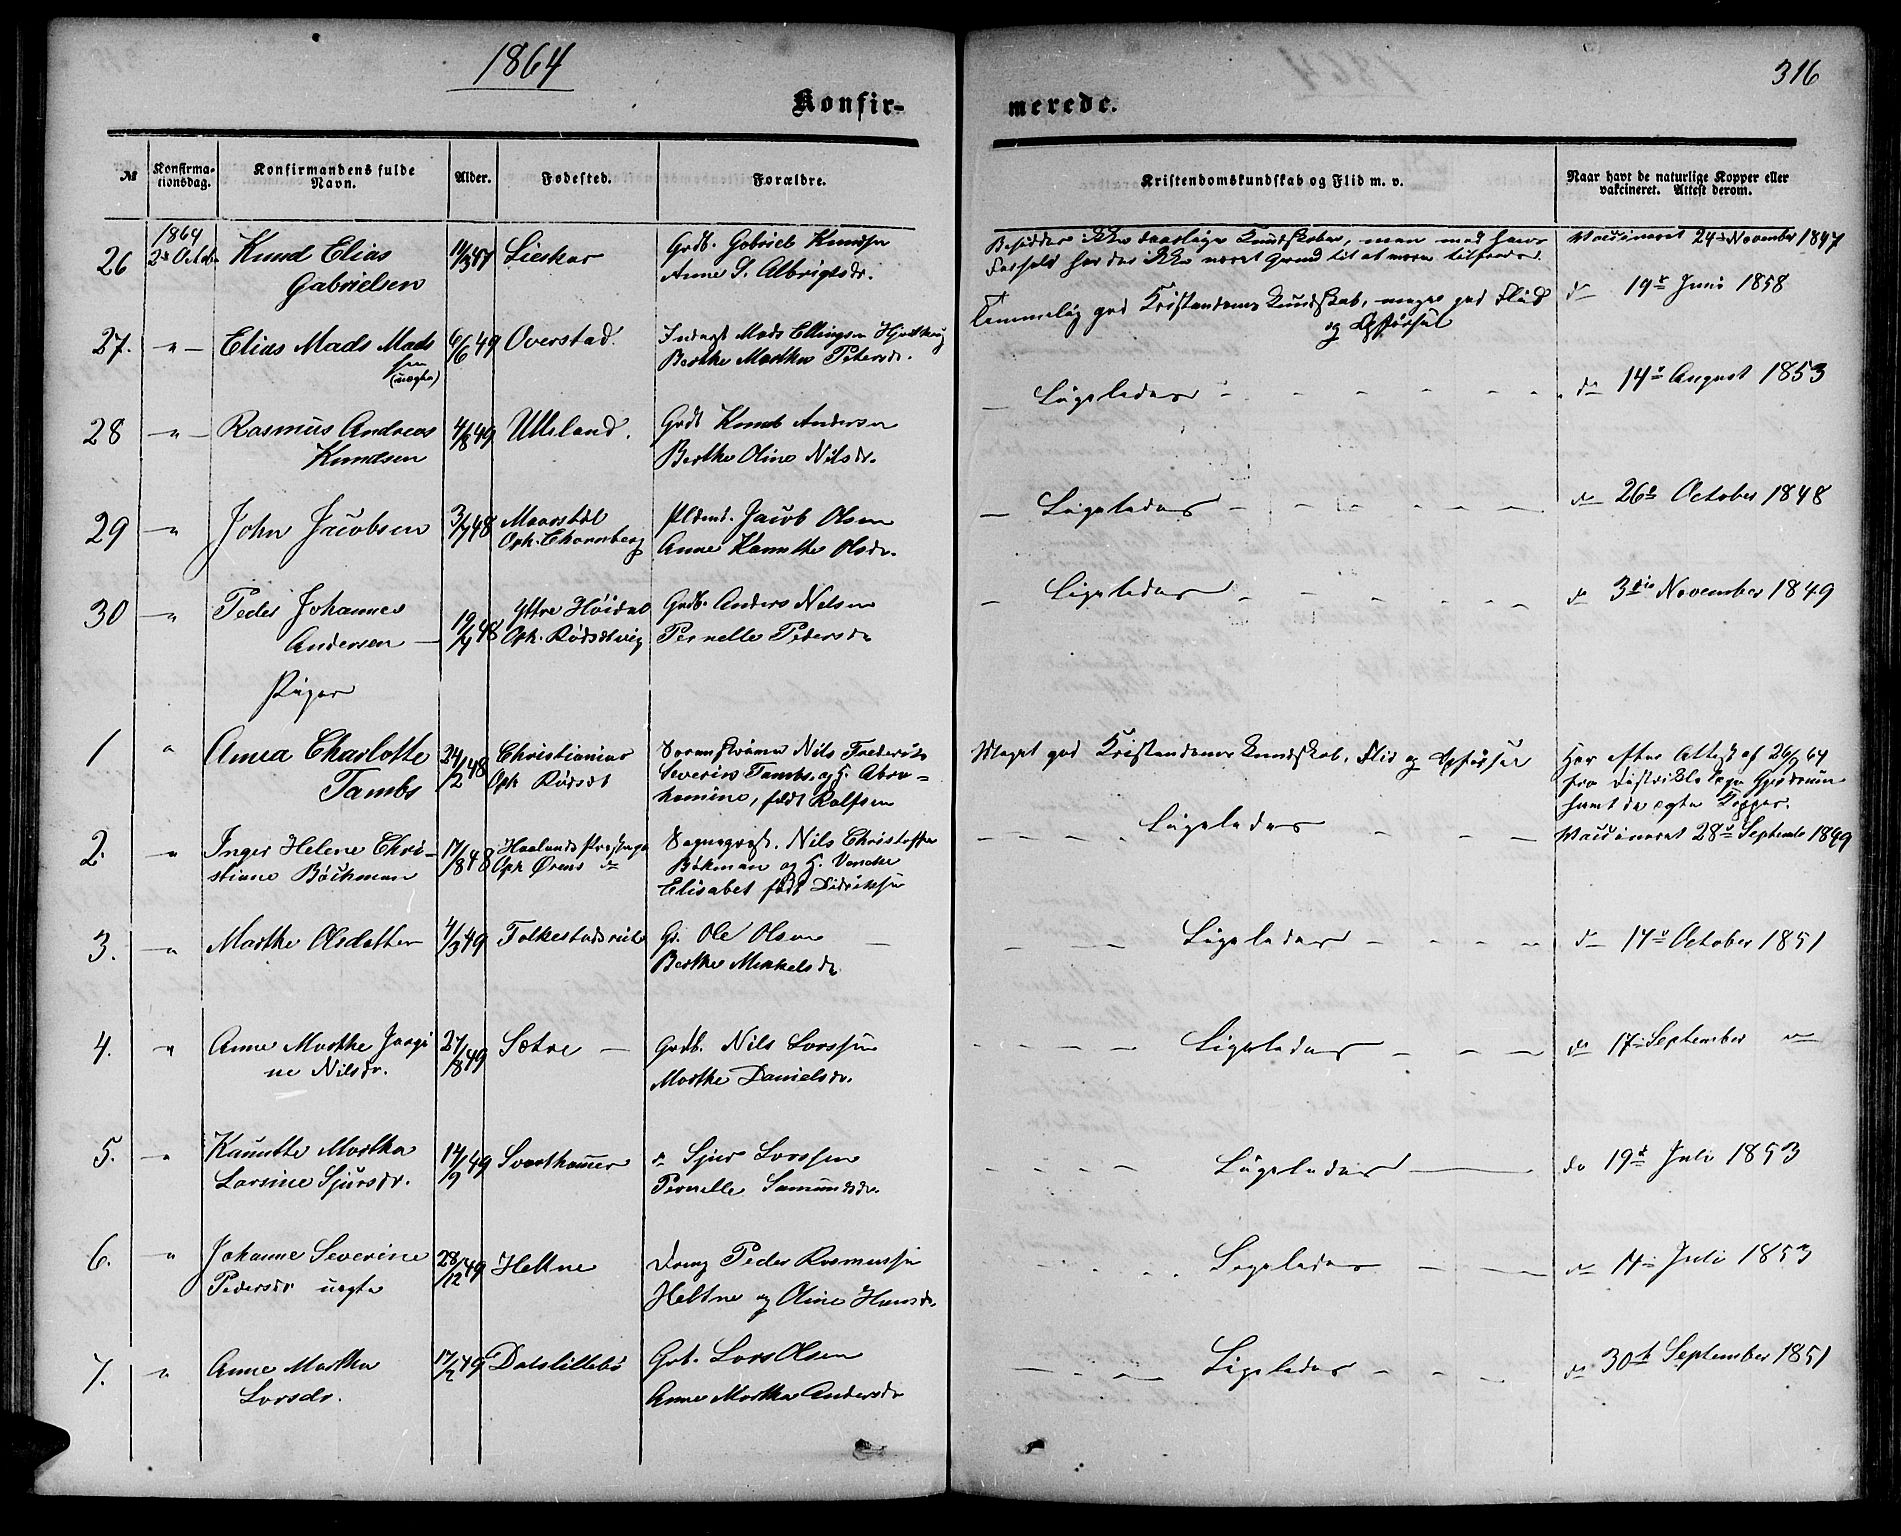 1864
316
Konfir-
merede.
№
Konfirma-
tionsdag.
Konfirmandens fulde
Navn.
Alder.
Fødested.
Forældre.
Kristendomskundskab og Flid m. v.
Naar havt de naturlige Kopper eller
vakcineret. Attest derom.
26
1864
2den Octobr
Knud Elias
Gabrielsen
Lieskar
Grdb. Gabriel Knudsen
Anne S. Albrigtsdr.
Besidder ikke daarlige Kundskaber, men med hans
Forhold har der ikke været Grund til at være tilfreds.
Vaccineret 24de November 1847
27.
"
Elias Mads Mads
sen
(uægte)
6/6 49
Overstad.
Mads Ellingsen
Berthe Marthe Petersdr.
Temmelig god Kristendoms Kundskab, meget god Flid
og Opførsel
do 19de Juni 1858
28
"
Rasmus Andreas
Knudsen
4/8 49
Ulleland.
Grdb Knud Andersen
Berthe Oline Nilsdr.
Ligeledes
do 14de August 1853
29
"
John Jacobsen
3/7 48
Maarstøl
Oph.
Pldmd. Jacob Olsen
Anne Kanutte Olsdr.
Ligeledes
do 26de October 1848
30
"
Peder Johannes
Andersen
Yttre Høidal
Oph. Rødsætvig
Grdb. Anders Nilsen
Pernelle Pedersdr
Ligeledes
do 3die November 1849
Piger
1
"
Anna Charlotte
Tambs
24/2 48
Christiania
Oph Rødsæt
Sorenskriver Nils Frederik
Severin Tambs og H. Abra=
hamine, født Rolfsen
Meget god Kristendoms Kundskab, Flid og Opførsel
Har efter Attest af 26/9 64
fra Distriktslæge
havt de ægte Kopper.
2.
"
Inger Helene Chri-
stiane Böckman
17/8 48
Oph Ørsens do
Sognepræst. Nils Christoffer
Böckman og H. Vencke
Elisabet født Didriksen
Ligeledes
Vaccineret 28de Septembr 1849
3.
"
Marthe Olsdatter
4/3 49
Folkestadsvik
G. Ole Olsen
Berthe Mikkelsdr
Ligeledes
do 14de October 1851
4.
"
Anne Marthe Jørgi
ne Nilsdr.
27/8 49
Sætre
Grdb. Nils Larssen
Marthe Danielsdr.
Ligeledes
do 17de September
5.
"
Kanutte Martha
Larsine Sjursdr.
14/9 49
Svarthamar
" Sjur Larssen
Pernelle Samundsdr.
Ligeledes
do 19de Juli 1853
6.
"
Johanne Severine
Pedersdr uægte
28/12 49
Heltne
Dreng Peder Rasmussen
Heltne og Oline Hansdr.
Ligeledes
do 14de Juli 1853
7.
"
Anne Martha
Larsdr.
17/2 49
Datslillebø
Grb. Lars Olsen
Anne Martha Andersdr
Ligeledes
do 30te September 1851